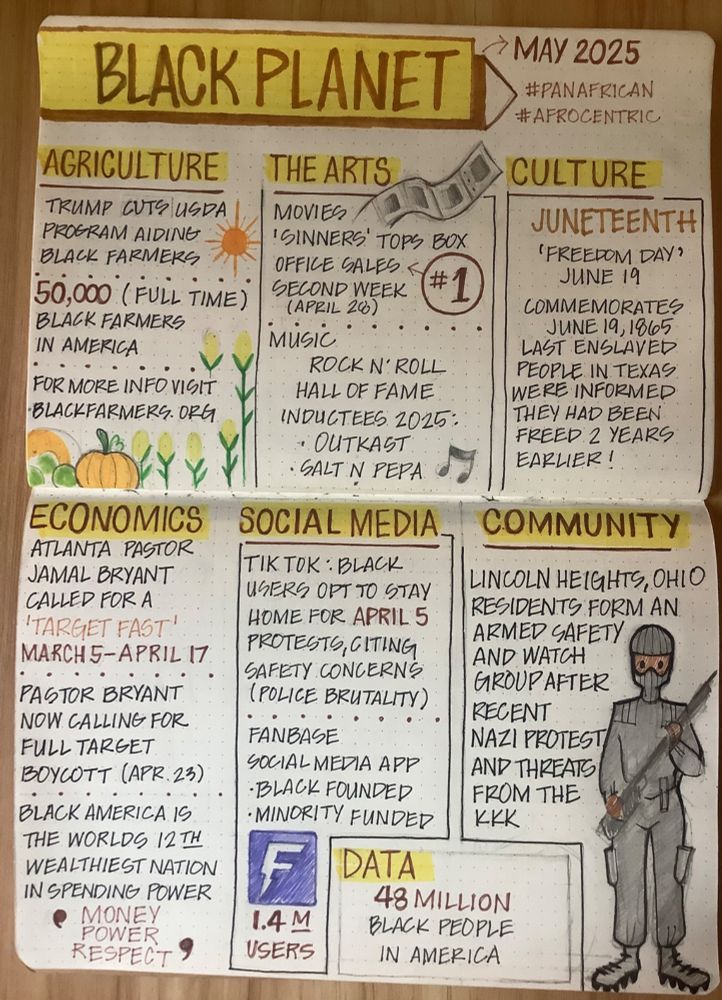 BLACK PLANET
MAY 2025
#PANAFRICAN
#AFROCENTRIC
AGRICULTURE
TRUMP CUTS USDA
PROGRAM AIDING
BLACK FARMERS
50,000 (FULL TIME)
BLACK FARMERS
IN AMERICA
FOR MORE INFO VISIT
BLACKFARMERS.ORG
THE ARTS
MOVIES
'SINNERS' TOPS BOX
OFFICE SALES
SECOND WEEK
(APRIL 28)
#1
MUSIC
ROCK N' ROLL
HALL OF FAME
INDUCTEES 2025:
· OUTKAST
· SALT N PEPA
CULTURE
JUNETEENTH
'FREEDOM DAY'
JUNE 19
COMMEMORATES
JUNE 19, 1865
LAST ENSLAVED
PEOPLE IN TEXAS
WERE INFORMED
THEY HAD BEEN
FREED 2 YEARS
EARLIER!
ECONOMICS
ATLANTA PASTOR
JAMAL BRYANT
CALLED FOR A
'TARGET FAST'
MARCH 5-APRIL 17
PASTOR BRYANT
NOW CALLING FOR
FULL TARGET
BOYCOTT (APR. 23)
BLACK AMERICA IS
THE WORLDS 12TH
WEALTHIEST NATION
IN SPENDING POWER
' MONEY
POWER
RESPECT '
SOCIAL MEDIA
TIK TOK: BLACK
USERS OPT TO STAY
HOME FOR APRIL 5
PROTESTS, CITING
SAFETY CONCERNS
(POLICE BRUTALITY)
FANBASE
SOCIAL MEDIA APP
· BLACK FOUNDED
· MINORITY FUNDED
F
1.4 M
USERS
COMMUNITY
LINCOLN HEIGHTS, OHIO
RESIDENTS FORM AN
ARMED SAFETY
AND WATCH
GROUP AFTER
RECENT
NAZI PROTEST
AND THREATS
FROM THE
KKK
DATA
48 MILLION
BLACK PEOPLE
IN AMERICA